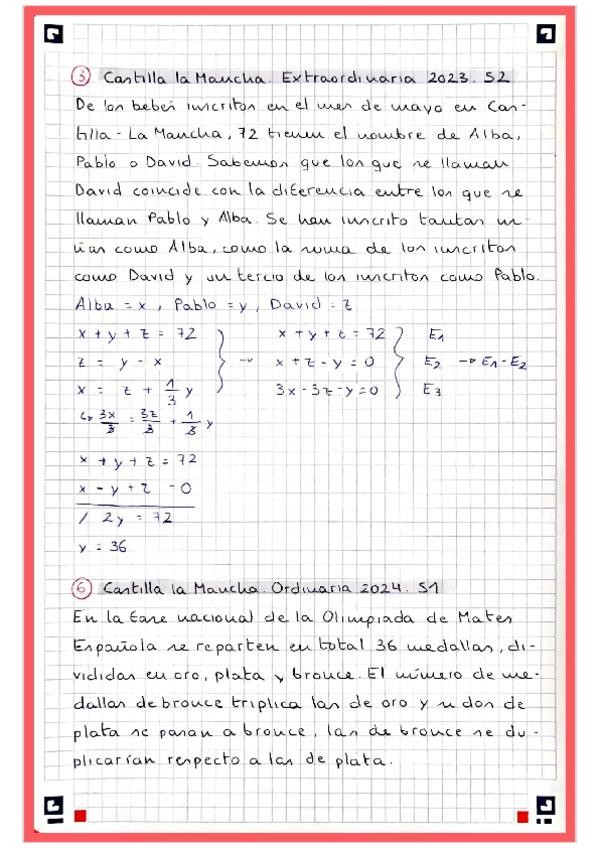 ③ Castilla la Mancha. Extraordinaria 2023. S2
De los bebés inscritos en el mes de mayo en Cas-
tilla - La Mancha, 72 tienen el nombre de Alba,
Pablo o David. Sabemos que los que se llaman
David coincide con la diferencia entre los que se
llaman Pablo y Alba. Se han inscrito tantas ni-
ñas como Alba, como la suma de los inscritos
como David y un tercio de los inscritos como Pablo.
Alba = x, Pablo = y, David = z
x + y + z = 72 x + y + z = 72 E1
z = y - x → x + z - y = 0 E2 → E1 - E2
x = z + 1/3 y 3x - 3z - y = 0 E3
↳ 3x/3 = 3z/3 + 1/3 y
x + y + z = 72
x - y + z = 0
/ 2y = 72
y = 36
⑥ Castilla la Mancha. Ordinaria 2024. S1
En la fase nacional de la Olimpiada de Mates
Española se reparten en total 36 medallas, di-
vididas en oro, plata y bronce. El número de me-
dallas de bronce triplica las de oro y si dos de
plata se pasan a bronce, las de bronce se du-
plicarían respecto a las de plata.